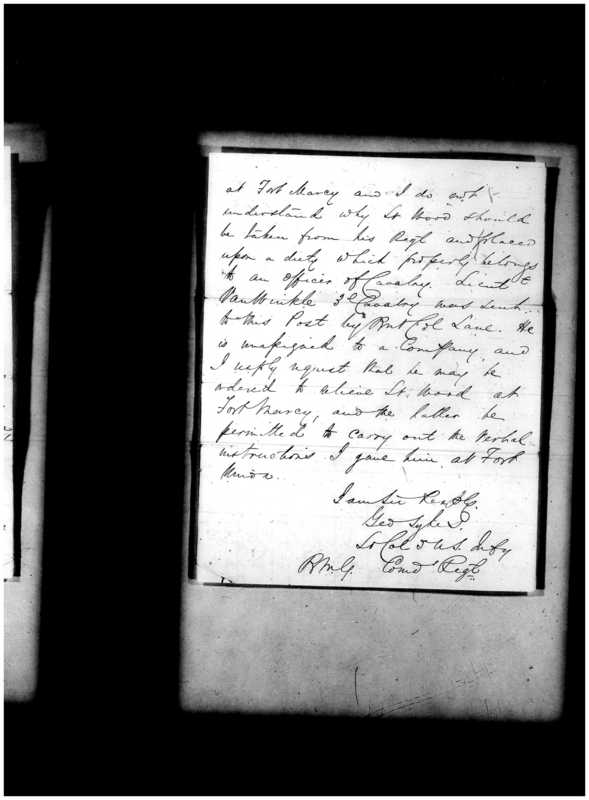 at Fort Marcy and I do not
understand why Lt Wood should
be taken from his Regt and placed
upon a duty which properly belongs
to an officer of Cavalry. Lieut
Van Winkle 3d Cavalry was sent
to this Post by Bvt Col Lane. He
is unassigned to a Company, and
I respfy request that he may be
ordered to relieve Lt. Wood at
Fort Marcy, and the latter be
permitted to carry out the verbal
instructions I gave him at Fort
Union.
I am Sir Resply.
Geo Sykes.
Lt Col 5 U.S. Infy
Comd Regt